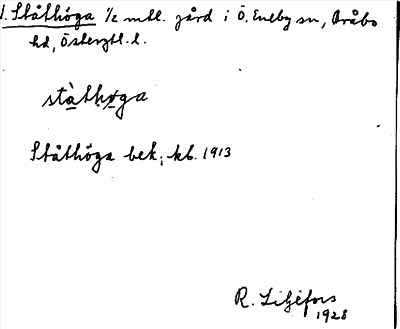 1. Ståthöga 1/2 mtl. gård i Ö. Eneby sn, Bråbo
hd, Östergtl. l.
ståthøga
Ståthöga bek; kb. 1913
R. Liljefors
1928